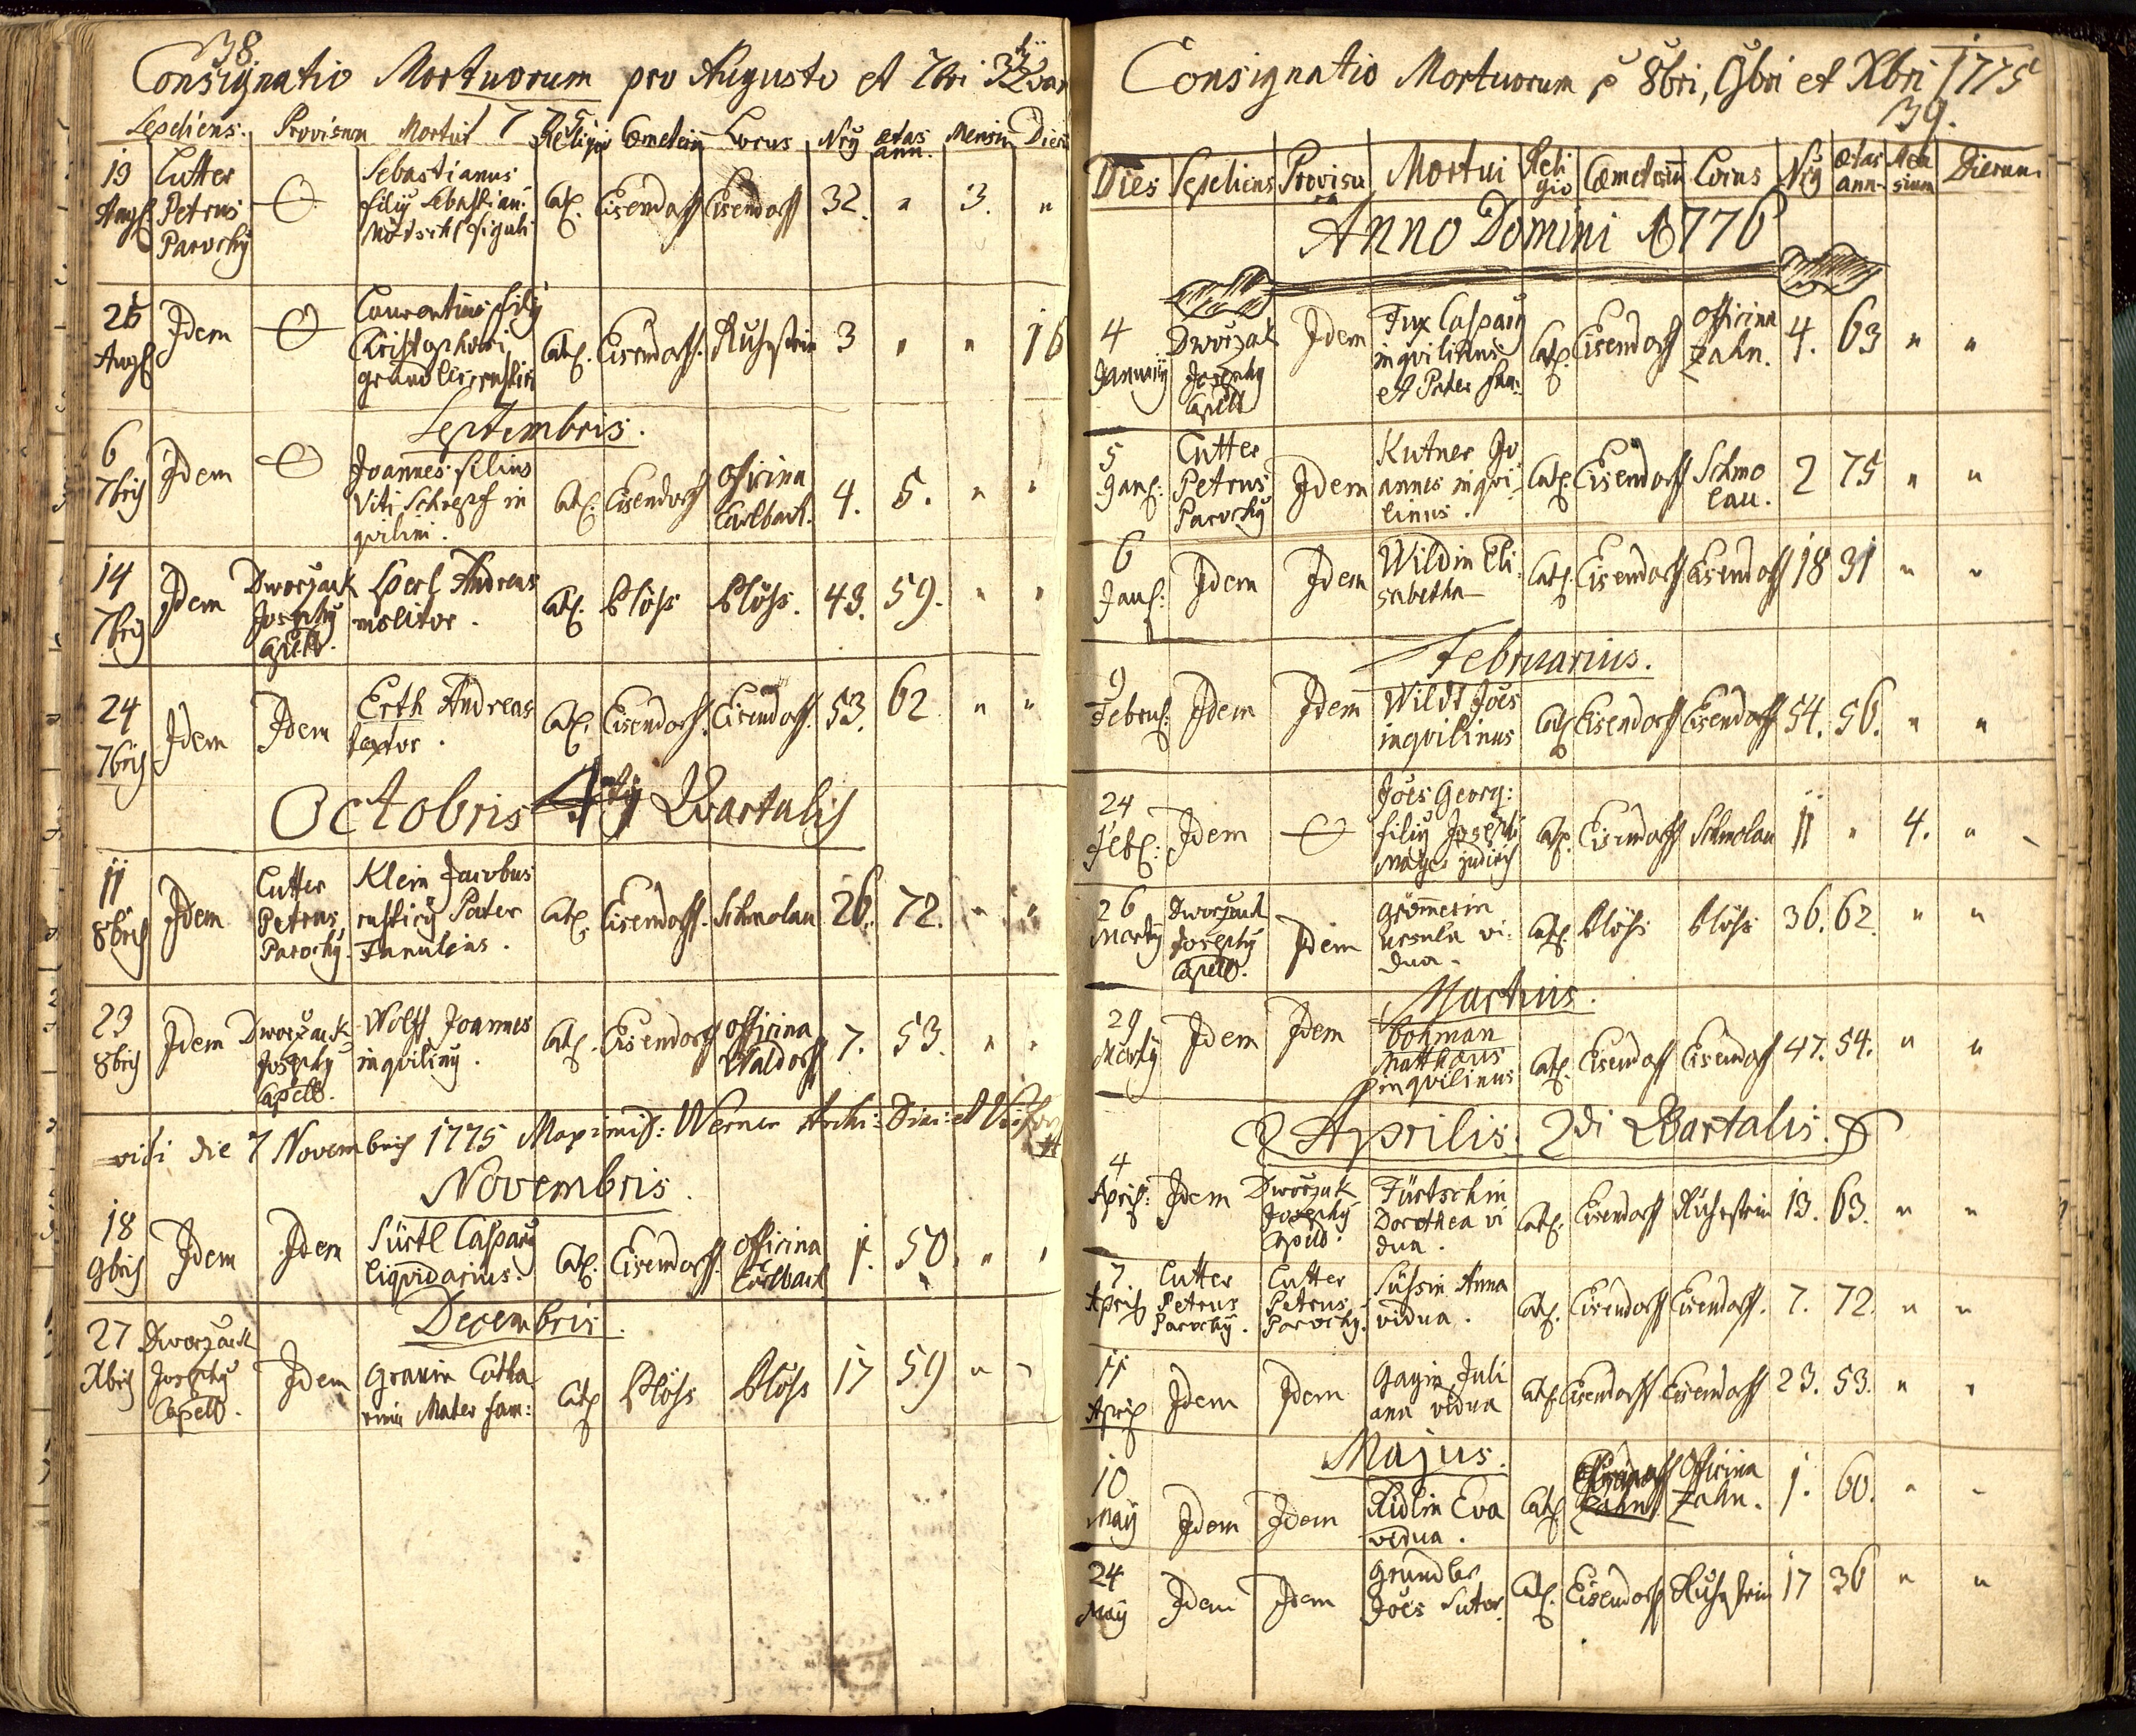 38.
Consignatio Mortuorum pro Augusto et 7bri
1775
Sepeliens. Provisum Mortui Religio Cœmeterin Locus Nrꝰ ætas ann. Mensiu Dieru
19 Aug. Cutter Petrus Parochꝰ Sebastianus filiꝰ Sebastiani figuli Cat. Eisendorff Eisendorff 32. " 3. "
25 Aug. Idem Laurentius filiꝰ Cristophori Cat. Eisendorff. Ruhstein 3 " " 16
Septembris.
6 7bris Idem Joannes filius Viti Schrepf inqvilini. Cat. Eisendorff officina Carlbach. 4. 5. " "
14 7bris Idem Dworzack Josephꝰ Capell. Andreas molitor. Cat. Plöss Plöss. 43. 59. " "
24 7bris Idem Idem Erth Andreas Cat. Eisendorff. Eisendorff. 53. 62 " "
Octobris 4ti Qvartalis
11 8bris Idem Cutter Petrus Parochꝰ. Klein Jacobus rusticꝰ Pater Familias. Cat. Eisendorff. Schmolau 26. 72. " "
23 8bris Idem Dworzack Josephꝰ Capell. Wolff Joannes inqvilinꝰ. Cat. Eisendorff officina Waldorff 7. 53. " "
vidi die 7 Novembris 1775 Werner
Novembris.
18 9bris Idem Idem Sürtl Casparꝰ Cat. Eisendorff. officina Carlbach 1. 50. " "
Decembris.
27 Xbris Dworzack Josephꝰ Capell. Idem Mater fam: Cat. Plöss Plöss 17 59 " "
Consignatio Mortuorum p 8bri, 9bri et Xbri 1775
39.
Dies Sepeliens Provisu Mortui Religio Cœmeteriu Locus Nrꝰ ætas ann. Mensium Dierum
Anno Domini 1776
4 Januarij Dworzak Josephꝰ Capell Idem Fux Casparꝰ inqvilinus et Pater fam: Cat. Eisendorff officina Zahn. 4. 63 " "
5 Jan: Cutter Petrus Parochꝰ Idem Kutner Joannes inqvilinus. Cat. Eisendorff Schmolau. 2 75 " "
6 Jan: Idem Idem Wildin Elisabetha Cat. Eisendorff Eisendorff 18 31 " "
Februarius.
9 Febru: Idem Idem Wildt Joes inqvilinus Cat. Eisendorff Eisendorff 54. 56. " "
24 Feb: Idem Joes Georg: filiꝰ Josephi judicis Cat. Eisendorff Schmolau 11 " 4. "
26 Martij Dworzack Josephꝰ Capell. Idem Ursula vidua. Cat. Plöss Plöss 36. 62. " "
Martius.
29 Martij Idem Idem Bohman Matthæus inqvilinus Cat. Eisendorff Eisendorff 47. 54. " "
Aprilis. 2di Qvartalis.
4 April: Idem Dworzak Josephꝰ Capell. Fürtschin Dorothea vidua. Cat. Eisendorff Ruhstein 13. 63. " "
7. Aprilis Cutter Petrus Parochꝰ. Cutter Petrus Parochꝰ. Süssin Anna vidua. Cat. Eisendorff Eisendorff. 7. 72. " "
11 Aprilis Idem Idem Gayin Juliana vidua Cat. Eisendorff Eisendorff 23. 53. " "
Majus.
10 May Idem Idem Ridlin Eva vidua. Cat. Zahn Officina Zahn. 1. 60. " "
24 May Idem Idem Grundler Joes Sutor. Cat. Eisendorff Ruhstein 17 36 " "